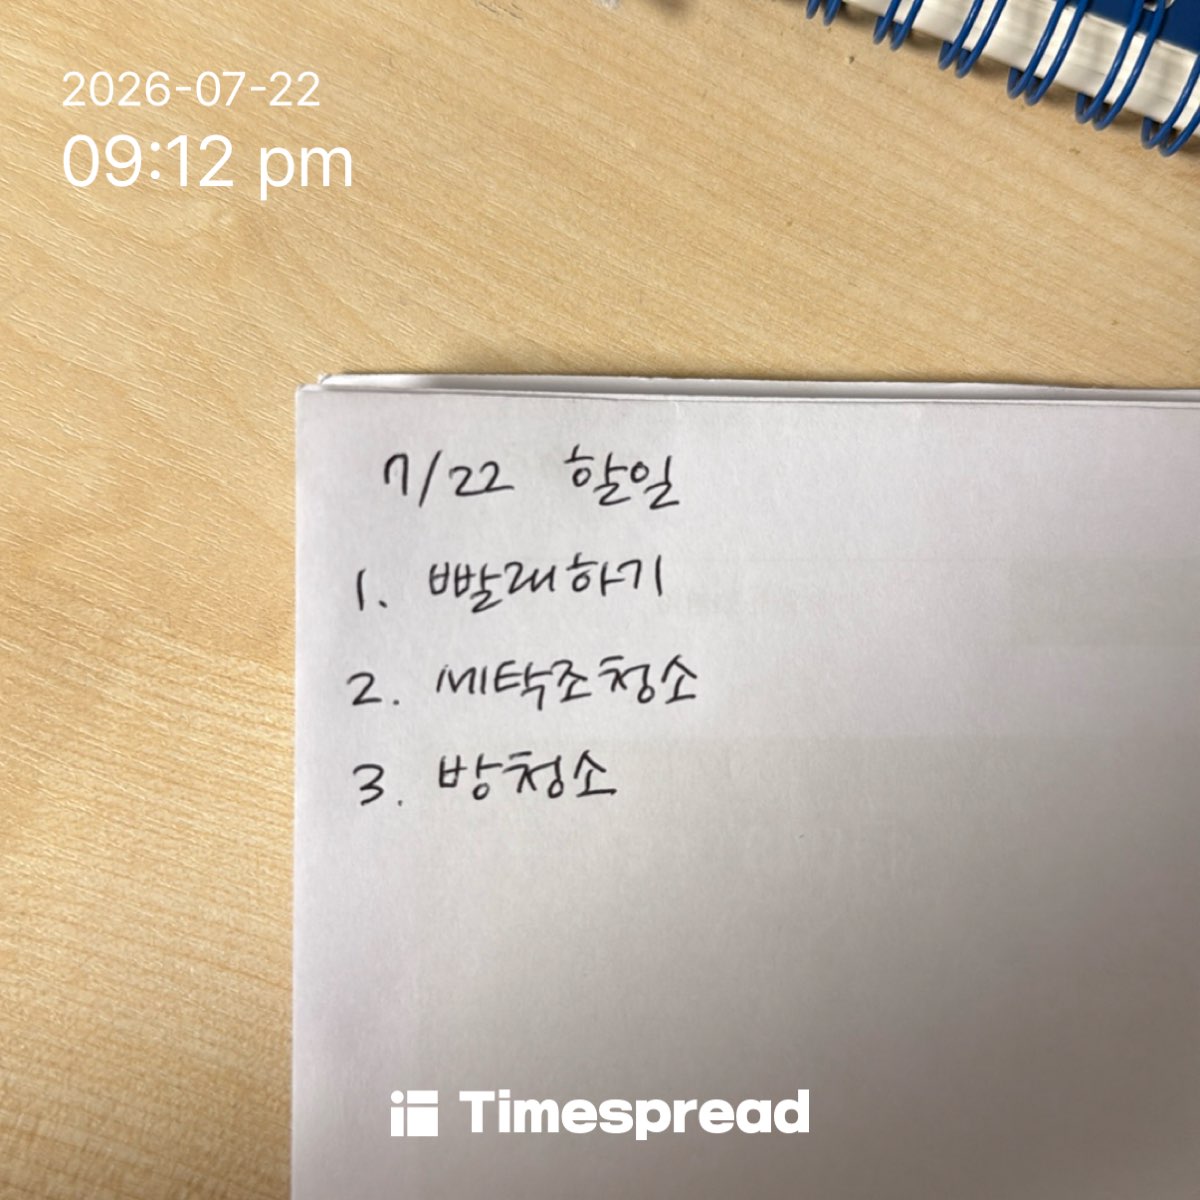 2026-07-22
09:12 pm
7/22 할일
1. 빨래하기
2. 세탁조청소
3. 방청소
Timespread